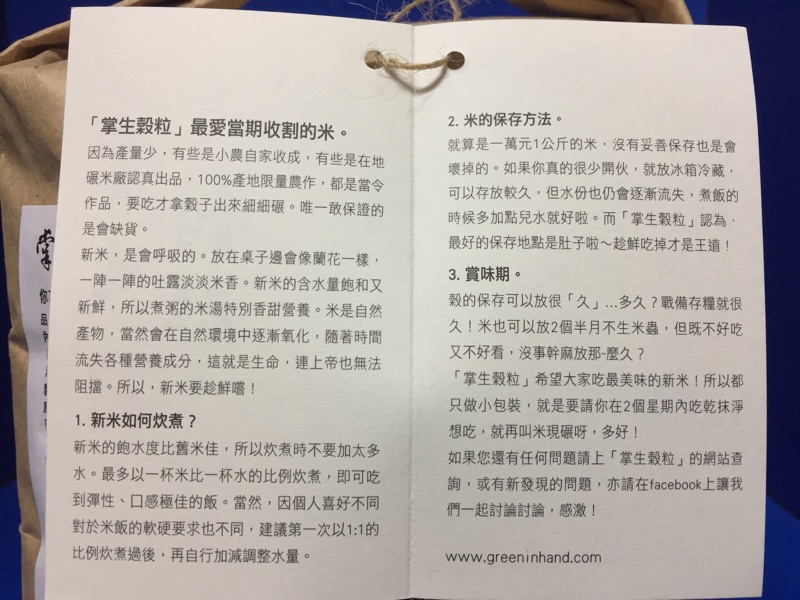 「掌生穀粒」最愛當期收割的米。
因為產量少，有些是小農自家收成，有些是在地
碾米廠認真出品，100%產地限量農作，都是當令
作品，要吃才拿穀子出來細細碾。唯一敢保證的
是會缺貨。
新米，是會呼吸的。放在桌子邊會像蘭花一樣，
一陣一陣的吐露淡淡米香。新米的含水量飽和又
新鮮，所以煮粥的米湯特別香甜營養。米是自然
產物，當然會在自然環境中逐漸氧化，隨著時間
流失各種營養成分，這就是生命，連上帝也無法
阻擋。所以，新米要趁鮮嚐！
1. 新米如何炊煮？
新米的飽水度比舊米佳，所以炊煮時不要加太多
水。最多以一杯米比一杯水的比例炊煮，即可吃
到彈性、口感極佳的飯。當然，因個人喜好不同
對於米飯的軟硬要求也不同，建議第一次以1:1的
比例炊煮過後，再自行加減調整水量。
2. 米的保存方法。
就算是一萬元1公斤的米，沒有妥善保存也是會
壞掉的。如果你真的很少開伙，就放冰箱冷藏，
可以存放較久，但水份也仍會逐漸流失，煮飯的
時候多加點兒水就好啦。而「掌生穀粒」認為，
最好的保存地點是肚子啦～趁鮮吃掉才是王道！
3. 賞味期。
穀的保存可以放很「久」...多久？戰備存糧就很
久！米也可以放2個半月不生米蟲，但既不好吃
又不好看，沒事幹麻放那~麼久？
「掌生穀粒」希望大家吃最美味的新米！所以都
只做小包裝，就是要請你在2個星期內吃乾抹淨
想吃，就再叫米現碾呀，多好！
如果您還有任何問題請上「掌生穀粒」的網站查
詢，或有新發現的問題，亦請在facebook上讓我
們一起討論討論，感激！
www.greeninhand.com